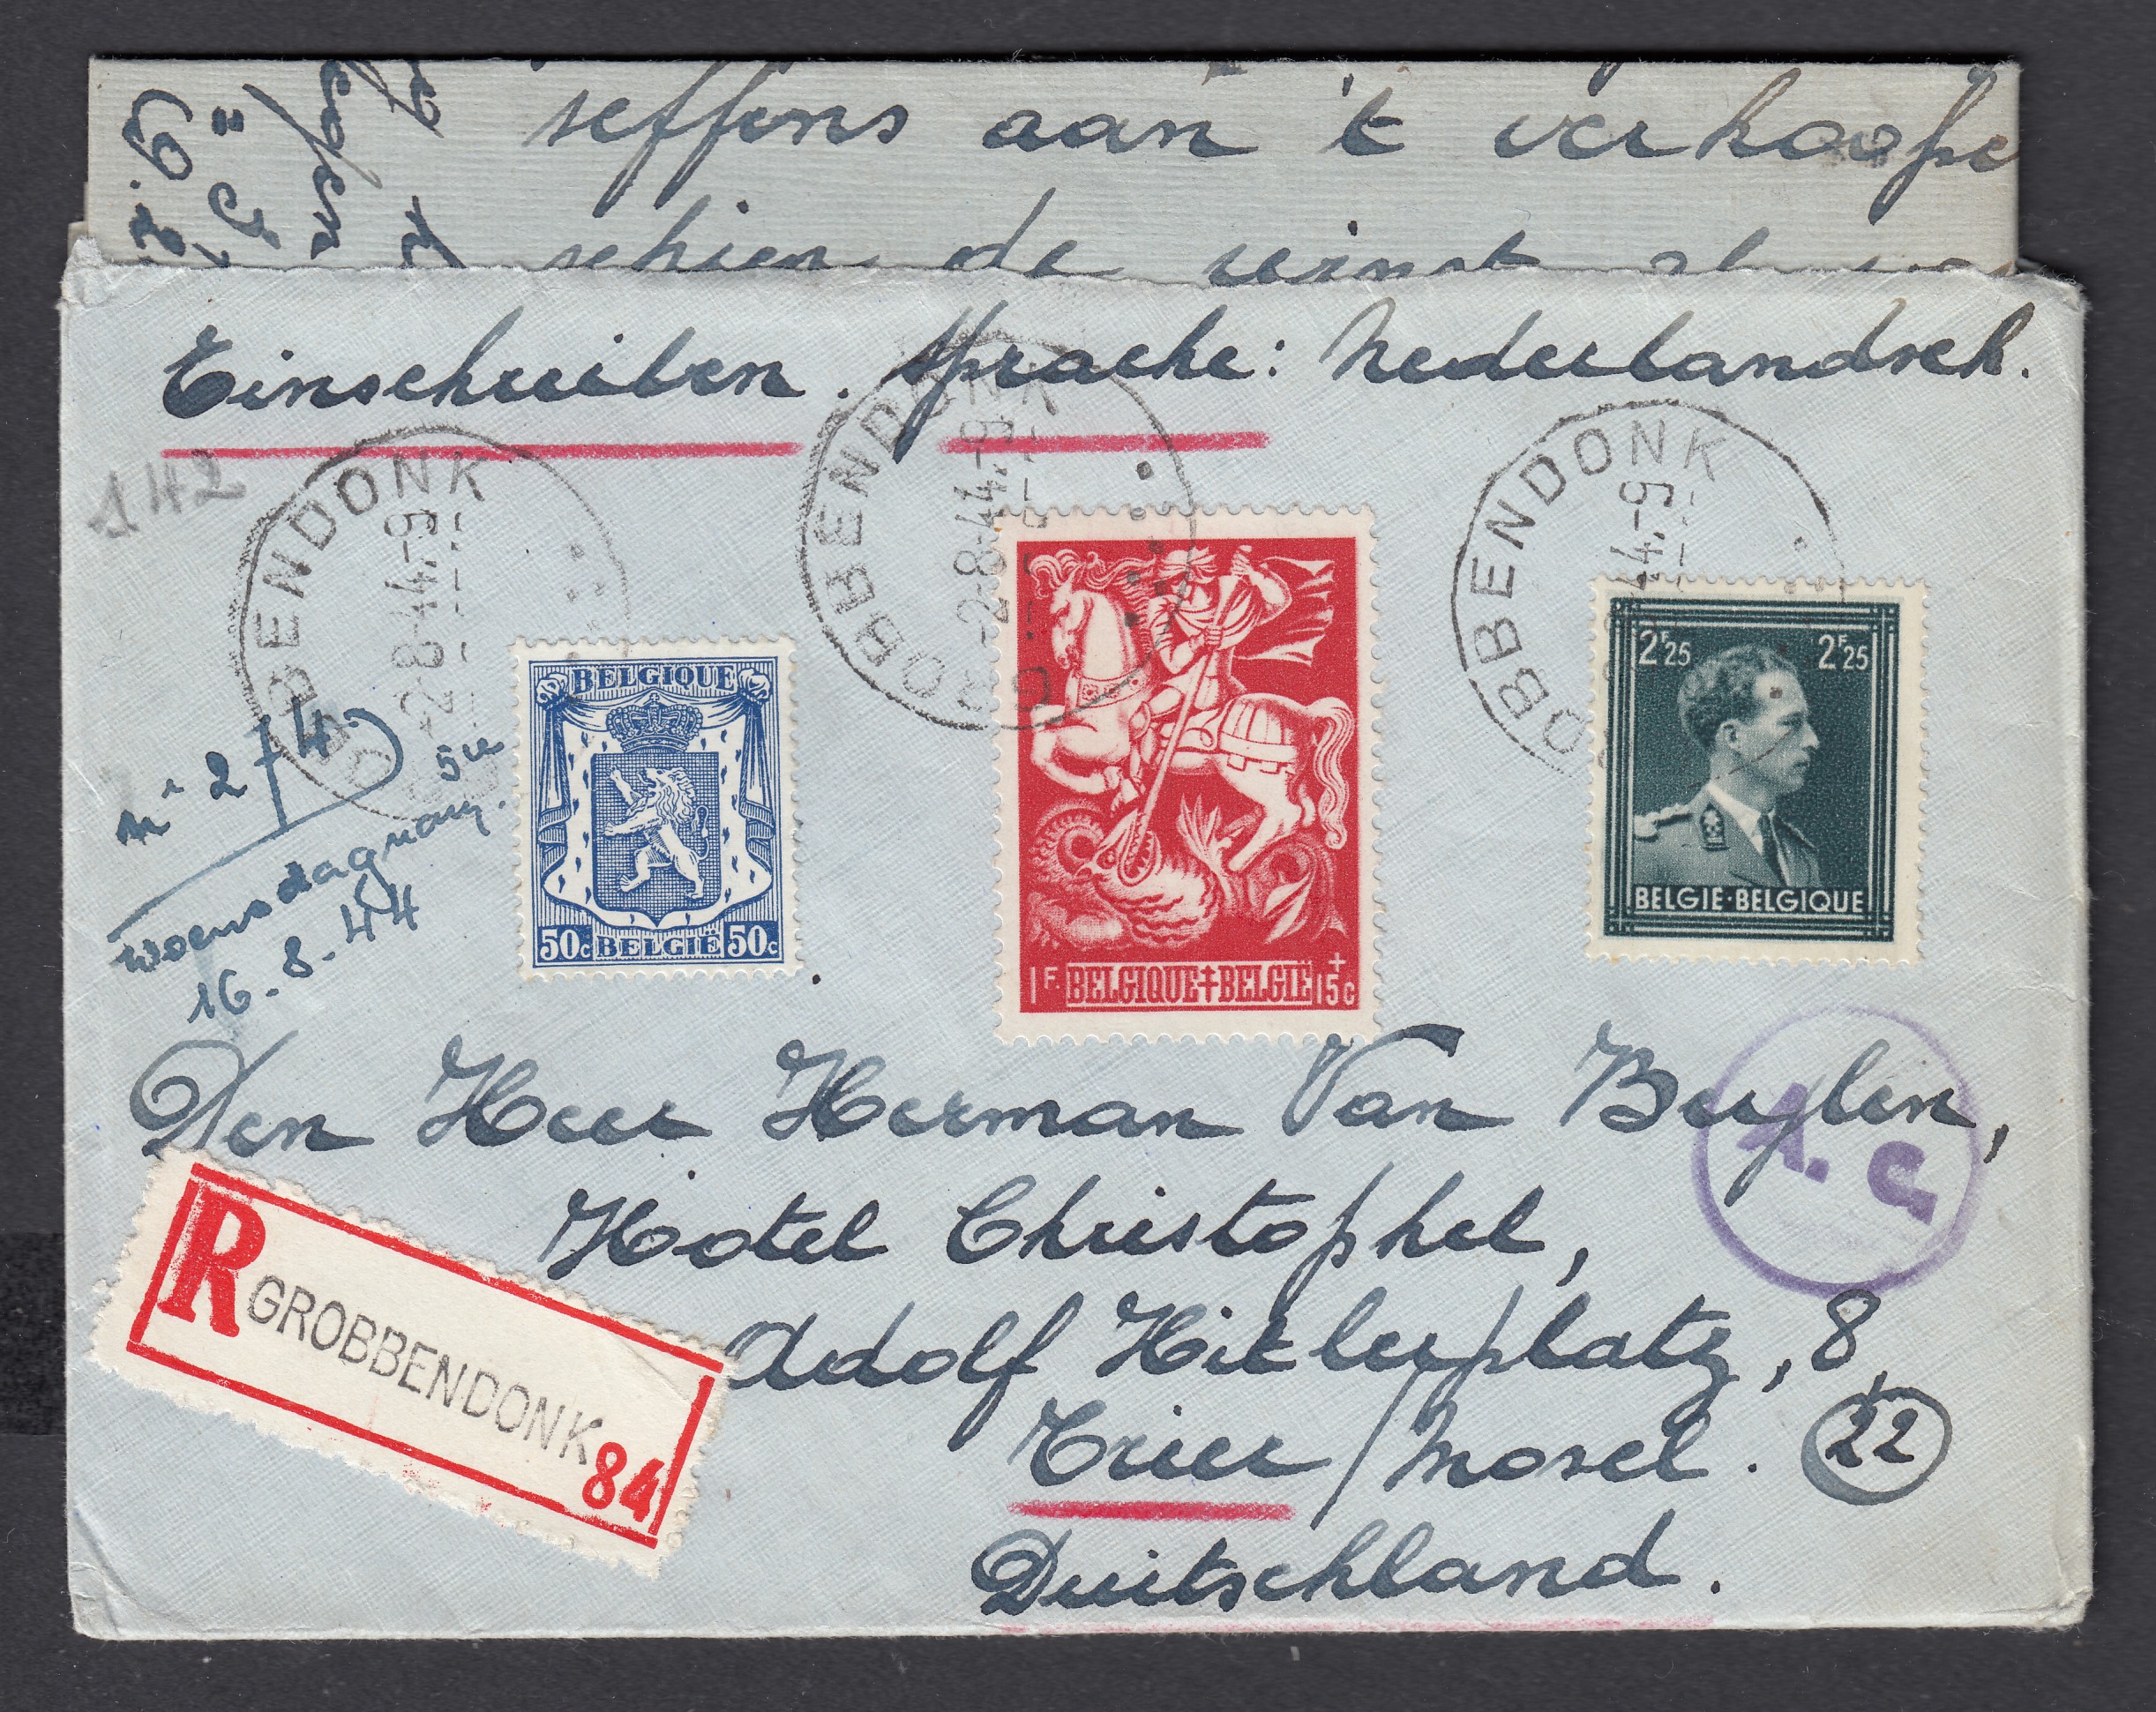 seffens aan 't verhoope
schien de
Einschreiben. Sprache: Nederlandsch.
GROBBENDONK
-2-8-44.-9
GROBBENDONK
-2-8-44.-9
OBBENDONK
44.-9
142
n° 274
woensdagnam. 5u
16.8.44
BELGIQUE
50c BELGIË 50c
1F. BELGIQUE BELGIË +15c
2F25 2F25
BELGIË·BELGIQUE
A.c.
Den Heer Herman Van Beylen,
Hotel Christophel,
R GROBBENDONK 84
Adolf Hitlerplatz, 8,
Trier/Mosel. 22
Duitschland.